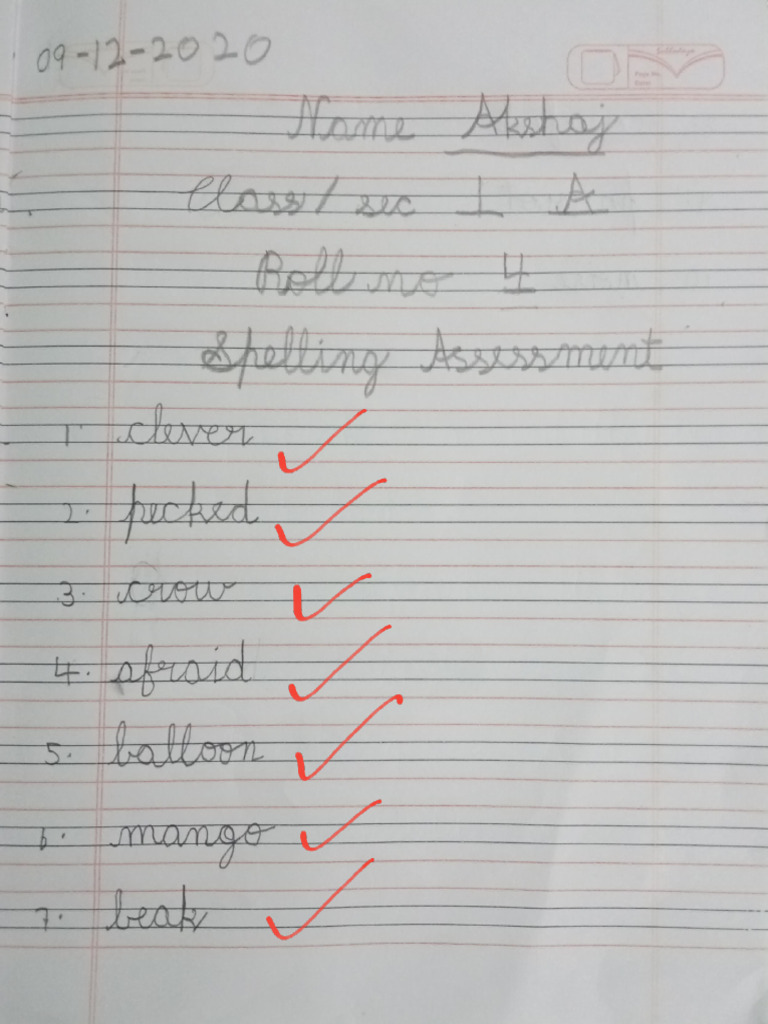 09-12-2020
Name Akshaj
Class/sec 1 A
Roll no 4
Spelling Assessment
1. clever
2. pecked
3. crow
4. afraid
5. balloon
6. mango
7. beak